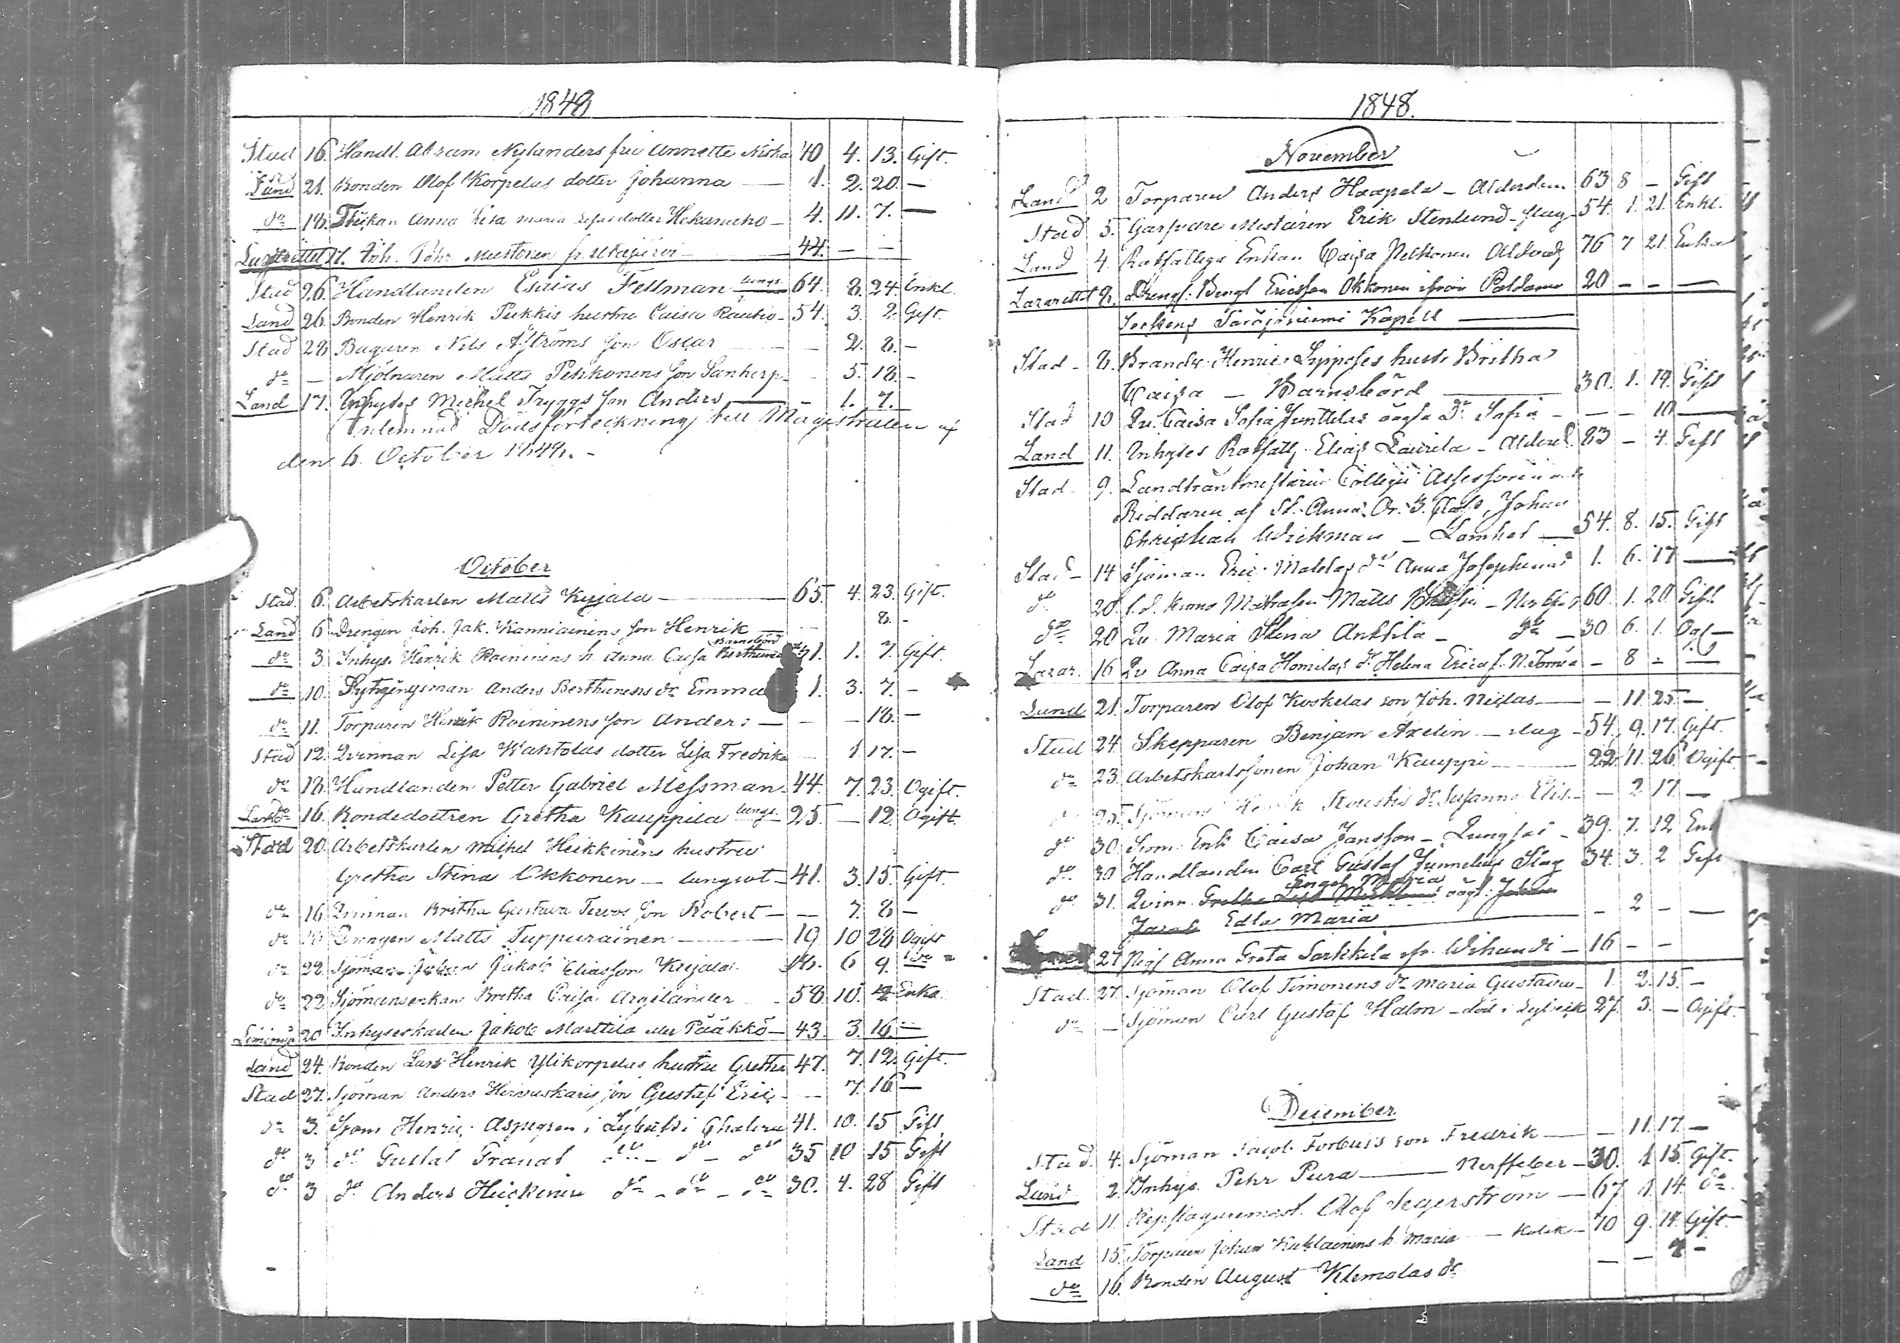 1848
Stad 16. Handl. Abram Nylanders fru Annette Niska 40 4. 13. Gift.
Land 21. Bonden Olof Korpelas dotter Johanna — 1. 2. 20. —
do 18. Anna Lisa Maria dotter — 4. 11. 7. —
44. — —
Stad 26. Handlanden Esaias Fellman lungs. 64. 8. 24. Enkl.
Land 26. Bonden Henrik Pukkis hustru Caisa Rautio — 54. 3. 2. Gift.
Stad 28. Bagaren Nils Åströms son Oscar — 2. 8. —
do — Mjölnaren Matts Pekkonens son — 5. 18. —
Land 17. Inhyses Michel Tryggs son Anders — — 1. 7.
Inlemnad Dödsförteckning till Magistraten
den 6. October 1848. -
October
Stad 6. Arbetskarlen Matts Kujala — 65. 4. 23. Gift.
Land 6. Drengen Joh. Jak. Kanniainens son Henrik — 8. -
do 3. Inhys. Henrik Roininens h. Anna Caisa Barnsbörd 1. 7. Gift.
do 10. Anders Berthunens dr Emma 1. 3. 7. -
do 11. Torparen Henrik Roininens son Anders — — — 18. —
Stad 12. Qvinnan Lisa Kantolas dotter Lisa Fredrika — 1 17. —
do 18. Handlanden Petter Gabriel Messman 44. 7. 23. Ogift.
Land 16. Bondedottren Gretha Kauppila lungs. 25. — 12. Ogift.
Stad 20. Arbetskarlen Michel Heikkinens hustru
Gretha Stina Okkonen — lungsot — 41. 3. 15. Gift.
do 16. Qvinnan Britha Gustava Tervos son Robert — — 7. 8 —
do Drengen Matts Tuppurainen — 19 10 28 Ogift
do 22. Sjöman Jakob Eliasson Kujala. 6 9.
do 22. Sjömansenkan Britha Caisa Argelander 58. 10. Enka.
20. Inhyseskarlen Jakob Marttila eller Pääkkö — 43. 3. 16. —
Land 24. Bonden Lars Henrik Ylikorpelas hustru Gretha 47. 7. 12. Gift.
Stad 27. Sjöman Anders son Gustaf Eric — 7. 16 —
do 3. Sjöm Henric Aspegren i 41. 10. 15 Gift
do 3 do Gustaf Granat do — do — do 35 10 15 Gift
do 3 do Anders Heickinen do — do — do 30. 4. 28 Gift
1848.
November
Land 2 Torparen Anders Haapala — Ålderdom 63 8 — Gift
Stad 5. Garfvare Mestaren Erik Stenlund — slag 54. 1. 21. Enkl.
Land 4. Rotfattiga Enkan Caisa Pelkonen 76 7 21 Enka
Lazarettet 2. Drengs. Bengt Ericsson Okkonen ifrån Paldamo 20 — — —
Sockens Säräisniemi Kapell —
Stad — 8. Brandv. Henric hustr. Britha
Caisa — Barnsbörd 30. 1. 19. Gift
Stad 10 Qv. Caisa Sofia Junttilas oägta dr Sofia — — — 10 —
Land 11. Inhyses Rotfatt. Elias Laurila — 83 — 4. Gift
Stad 9. Landträntmästaren Collegii Assessoren
Riddaren af St. Anna Or. 3. Class, Johan
Christian Wickman — 54. 8. 15. Gift
Stad — 14 Sjöman Eric dr Anna Josephina 1. 6. 17 —
do 20. Matts 60. 1. 20 Gift
do 20 Qv. Maria Stina Anttila — do — 30 6. 1. Og. —
Lazar. 16 Qv Anna Caisa dr Helena — 8 — —
Land 21. Torparen Olof Koskelas son Joh. Niclas — — 11 25 —
Stad 24. Skepparen Benjam Axelin — slag — 54. 9. 17. Gift.
do 23. Arbetskarlssonen Johan Kauppi — 22. 11. 26 Ogift.
25. Sjöman Henrik dr Susanna Elis. — — 2 17. —
do 30. Sjöm. Enk. Caisa Jansson — Lungsot — 39. 7. 12
do 30. Handlanden Carl Gustaf Junnelius Slag 34. 3. 2 Gift
do 31. Qvinn. oägt.
Edla Maria — — 2 — —
27 Pig. Anna Greta Sarkkila ifr. Wihandi — 16 — —
Stad 27. Sjöman Olof Timonens dr Maria Gustava — 1. 2. 15. —
do — Sjöman Carl Gustaf Holm — död i 27. 3. — Ogift.
December
Stad 4. Sjöman Jacob Forbuss son Fredrik — — 11. 17. —
Land 2. Inhys. Pehr Pura — Nerffeber — 30. 1 15. Gift.
Stad 11. Repslagaremäst. Olof Segerström — 67 1. 14. do
Land 15. Torparen Johan h. Maria — Kolik — 70 9. 14. Gift.
do 16. Bonden August Klemolas dr — — —